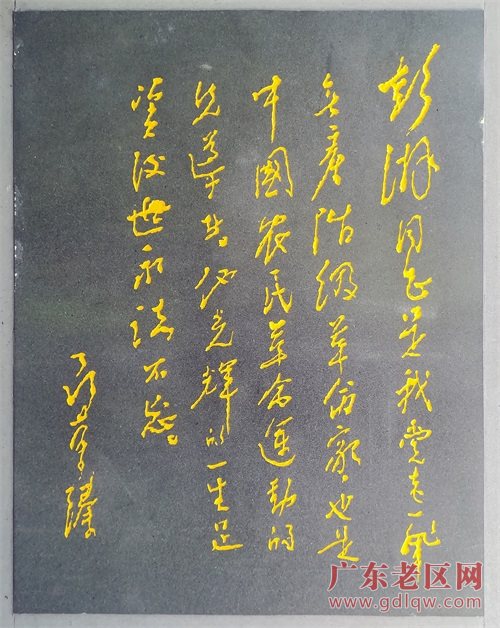 彭湃同志是我党老一辈
无產階级革命家，也是
中國农民革命運動的
先導者。他光輝的一生足
资後世永誌不忘。
聂荣臻
广东老区网
www.gdlqw.com